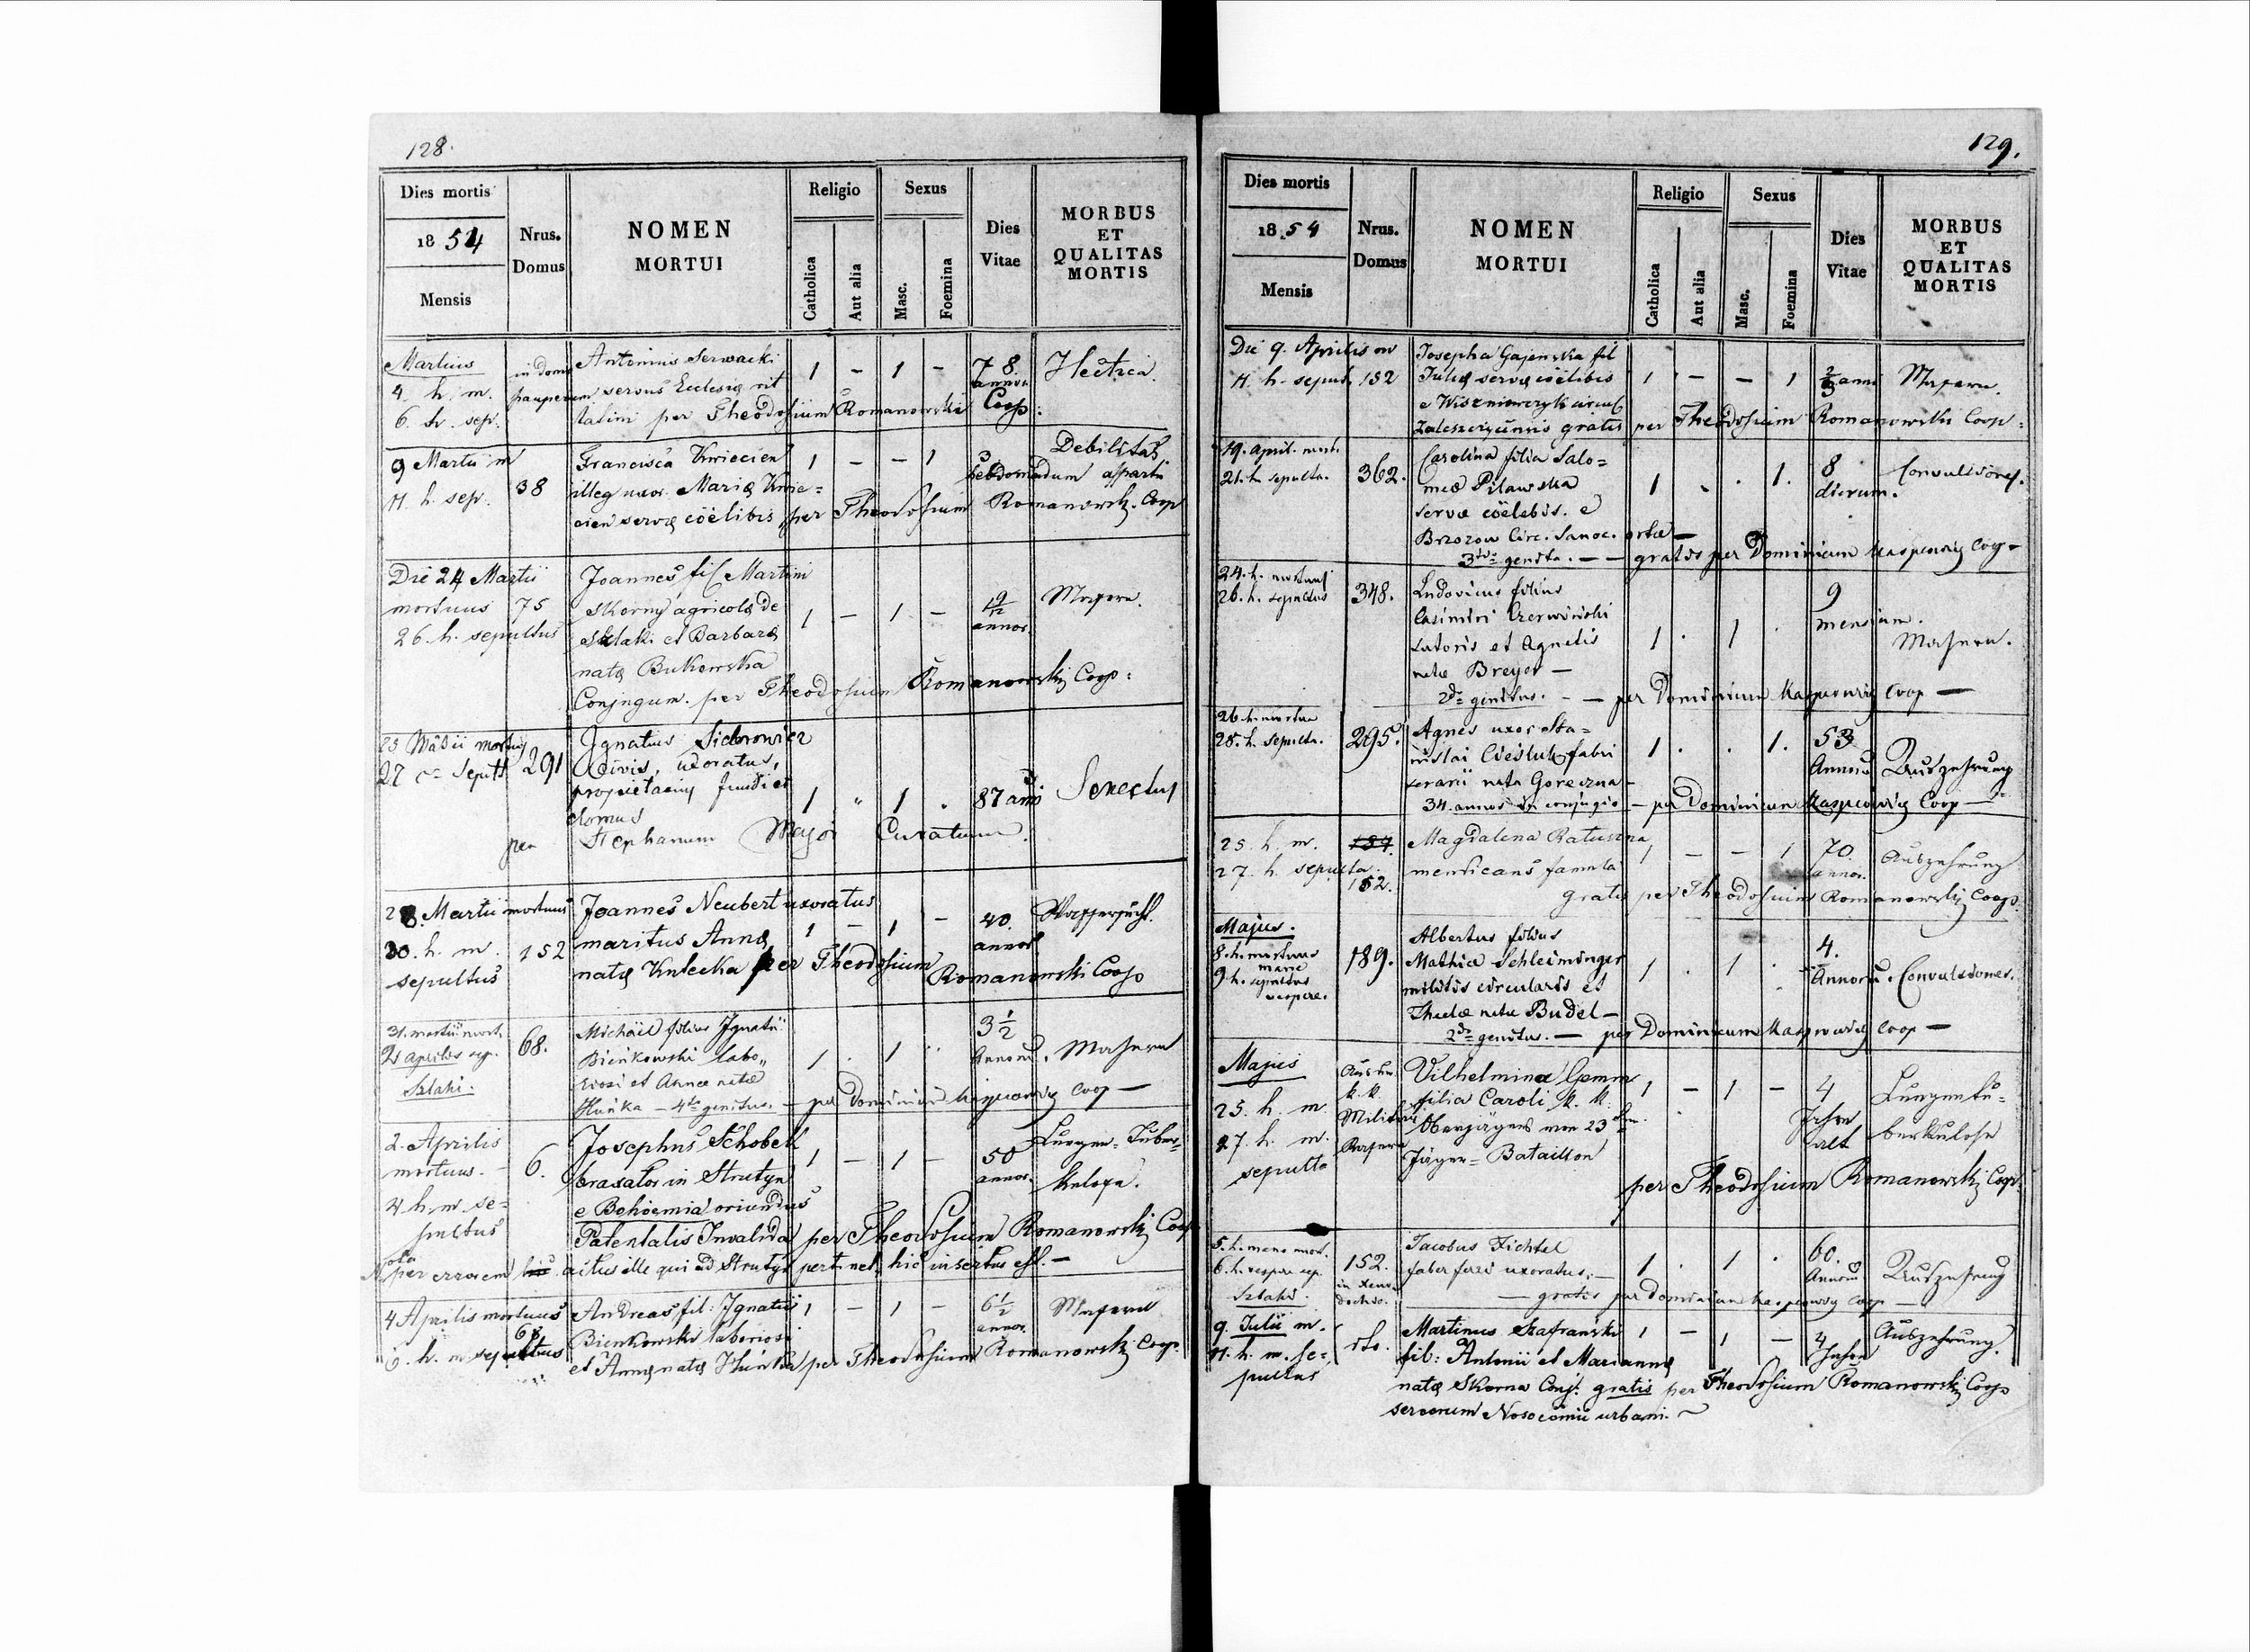 128.
Dies mortis
1854
Mensis
Nrus. Domus
NOMEN MORTUI
Religio
Catholica
Aut alia
Sexus
Masc.
Foemina
Dies Vitae
MORBUS ET QUALITAS MORTIS
Martius in domo Antonius Serwacki 1 - 1 - 78 Hectica.
4 h. m. pauperum servus Ecclesiæ rit annor.
6. h. sep. latini per Theodosium Romanowski Coop:
9 Martii m Francisca Kwiecien 1 - - 1 3 Debilitas
38 illeg uxor. Mariæ Kwie= hebdomadum a partu
11. h. sep. cien servæ cöelibis per Theodosium Romanowski Coop
Die 24 Martii Joannes fil Martini
mortuus 75 Skorny agricolæ de 1 - 1 - 9/12 Masern.
26. h. sepultus Szlaki et Barbaræ annor.
natæ Bukowska
Conjugum. per Theodosium Romanowski Coop:
25 Martii mortuus Ignatus Sidorowicz
27 sepult 291 civis, uxoratus,
proprietarius fundi et 1 " 1 . 87 anni Senectus
domus
per Stephanum Major Curatum
28. Martii mortuus Joannes Neubert uxoratus 1 - 1 - 40. Wassersucht.
30. h. m. 152 maritus Annæ annor
sepultus natæ Kulecka per Theodosium Romanowski Coop
31. martii mort. Michael filius Ignatii 3 1/2
2 aprilis sep. 68. Bieńkowski labo„ 1 . 1 . Annoru. Masern
Szlaki. riosi et Annæ natæ
Huńka — 4to genitus. — per Dominicum Kasperowicz Coop —
2. Aprilis Josephus Schobel Lungen-Tuber=
mortuus. 6. braxator in Strutyn 1 - 1 - 50 kulose.
4 h. m. se= e Bohoemia oriundus annor.
pultus Patentalis Invalida per Theodosium Romanowski Coop
Nota per errorem actus ille qui ad Strutyn pertinet, hic insertus est. —
4 Aprilis mortuus Andreas fil: Ignatii 1 - 1 - 6 1/2 Masern
68 Bienkowski laboriosi annor.
6. h. m sepultus et Annæ natæ Huńka per Theodosium Romanowski Coop
129.
Dies mortis
1854
Mensis
Nrus. Domus
NOMEN MORTUI
Religio
Catholica
Aut alia
Sexus
Masc.
Foemina
Dies Vitae
MORBUS ET QUALITAS MORTIS
Die 9. Aprilis m Josepha Gajewska fil
11. h. sepult. 152 Juliæ servæ cöelibis 1 - - 1 2/3 anni Masern
e Wiszniowczyk circul
Zaleszczycensis gratis per Theodosium Romanowski Coop:
19. april. mort. Carolina filia Salo= 8 Convulsiones.
21. h. sepulta. 362. meæ Pilawska 1 . . 1. dierum.
servæ cöelebis. e
Brzozow Circ. Sanoc. ortæ —
3tio genita. — — gratis per Dominicum Kasperowicz Coop —
24. h. mortuus Ludovicus filius 9
26. h. sepultus 348. Casimiri Czerwiński mensium.
sutoris et Agnetis 1 . 1 . Masern.
natæ Breyer —
2do genitus. — — per Dominicum Kasperowicz Coop —
26 h. mortua Agnes uxor Sta= 53
28. h. sepulta. 295. nislai Cieśluk fabri 1 . . 1. Annoru Auszehrung
serarii nata Goreczna —
34. annos in conjugio — per Dominicum Kasperowicz Coop —
25. h. m. 157. Magdalena Ratuszna 1 - - 1 70. Auszehrung
27. h. sepulta. 152. mendicans famula annor.
gratis per Theodosium Romanowski Coop.
Majus. Albertus filius 4.
8. h. mortuus mane 189. Mathiæ Schleiminger 1 . 1 . Annoru. Convulsiones.
9 h. sepultus vespere. militis circularis et
Theclæ natæ Budel —
2do genitus. — per Dominicum Kasperowicz Coop —
Majus Vilhelmina Gemm 1 - 1 - 4 Lungentu=
25. h. m. k. k. filia Caroli k. k. Jahre berkulose
27. h. m. Militär Oberjägers vom 23 alt
sepulta Jäger= Bataillon
per Theodosium Romanowski Coop.
5. h. mane mort. Jacobus Fichtel 60.
6. h. vespere sep. 152. faber ferri uxoratus. — 1 . 1 . Annoru Auszehrung
Szlaki. in Xeno dochio. — gratis per Dominicum Kasperowicz Coop —
9. Julii m. Martinus Szafranski 1 - 1 - 4 Auszehrung.
11. h. m. se= fil: Antonii et Mariannæ Jahre
pultus natæ Skorna Conj. gratis per Theodosium Romanowski Coop
servorum Nosocömii urbani. ~